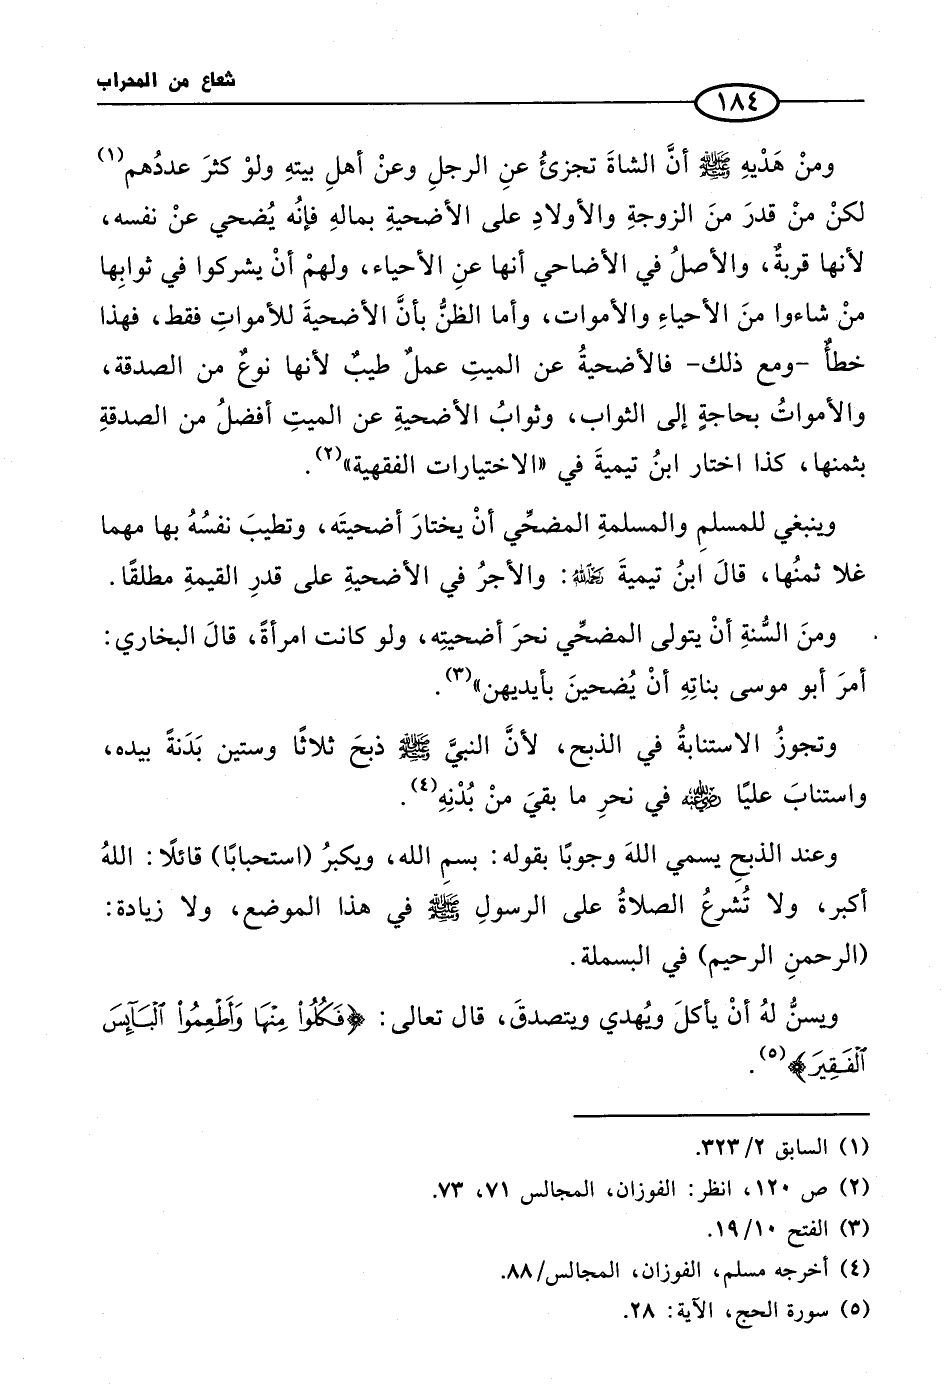 شعاع من المحراب
١٨٤
ومنْ هَدْيِهِ ﷺ أنَّ الشاةَ تجزئُ عنِ الرجلِ وعنْ أهلِ بيتهِ ولوْ كثرَ عددُهم(١)
لكنْ منْ قدرَ منَ الزوجةِ والأولادِ على الأضحيةِ بمالهِ فإنُه يُضحي عنْ نفسه،
لأنها قربةٌ، والأصلُ في الأضاحي أنها عنِ الأحياء، ولهمْ أنْ يشركوا في ثوابِها
منْ شاءوا منَ الأحياءِ والأموات، وأما الظنُّ بأنَّ الأضحيةَ للأمواتِ فقط، فهذا
خطأٌ -ومع ذلك- فالأضحيةُ عن الميتِ عملٌ طيبٌ لأنها نوعٌ من الصدقة،
والأمواتُ بحاجةٍ إلى الثواب، وثوابُ الأضحيةِ عن الميتِ أفضلُ من الصدقةِ
بثمنها، كذا اختار ابنُ تيميةَ في «الاختيارات الفقهية»(٢).
وينبغي للمسلمِ والمسلمةِ المضحِّي أنْ يختارَ أضحيتَه، وتطيبَ نفسُهُ بها مهما
غلا ثمنُها، قالَ ابنُ تيميةَ رَحِمَهُ اللهُ: والأجرُ في الأضحيةِ على قدرِ القيمةِ مطلقًا.
ومنَ السُّنةِ أنْ يتولى المضحِّي نحرَ أضحيتِه، ولو كانت امرأةً، قالَ البخاري:
أمرَ أبو موسى بناتِهِ أنْ يُضحينَ بأيديهن»(٣).
وتجوزُ الاستنابةُ في الذبح، لأنَّ النبيَّ ﷺ ذبحَ ثلاثًا وستين بَدَنةً بيده،
واستنابَ عليًا رَضِيَ اللهُ عَنْهُ في نحرِ ما بقيَ منْ بُدْنِهِ(٤).
وعند الذبحِ يسمي اللهَ وجوبًا بقوله: بسمِ الله، ويكبرُ (استحبابًا) قائلًا: اللهُ
أكبر، ولا تُشرعُ الصلاةُ على الرسولِ ﷺ في هذا الموضع، ولا زيادة:
(الرحمنِ الرحيم) في البسملة.
ويسنُّ لهُ أنْ يأكلَ ويُهدي ويتصدقَ، قال تعالى: ﴿فَكُلُواْ مِنْهَا وَأَطْعِمُواْ الْبَآئِسَ
ٱلْفَقِيرَ﴾(٥).
(١) السابق ٣٢٣/٢.
(٢) ص ١٢٠، انظر: الفوزان، المجالس ٧١، ٧٣.
(٣) الفتح ١٩/١٠.
(٤) أخرجه مسلم، الفوزان، المجالس/٨٨.
(٥) سورة الحج، الآية: ٢٨.